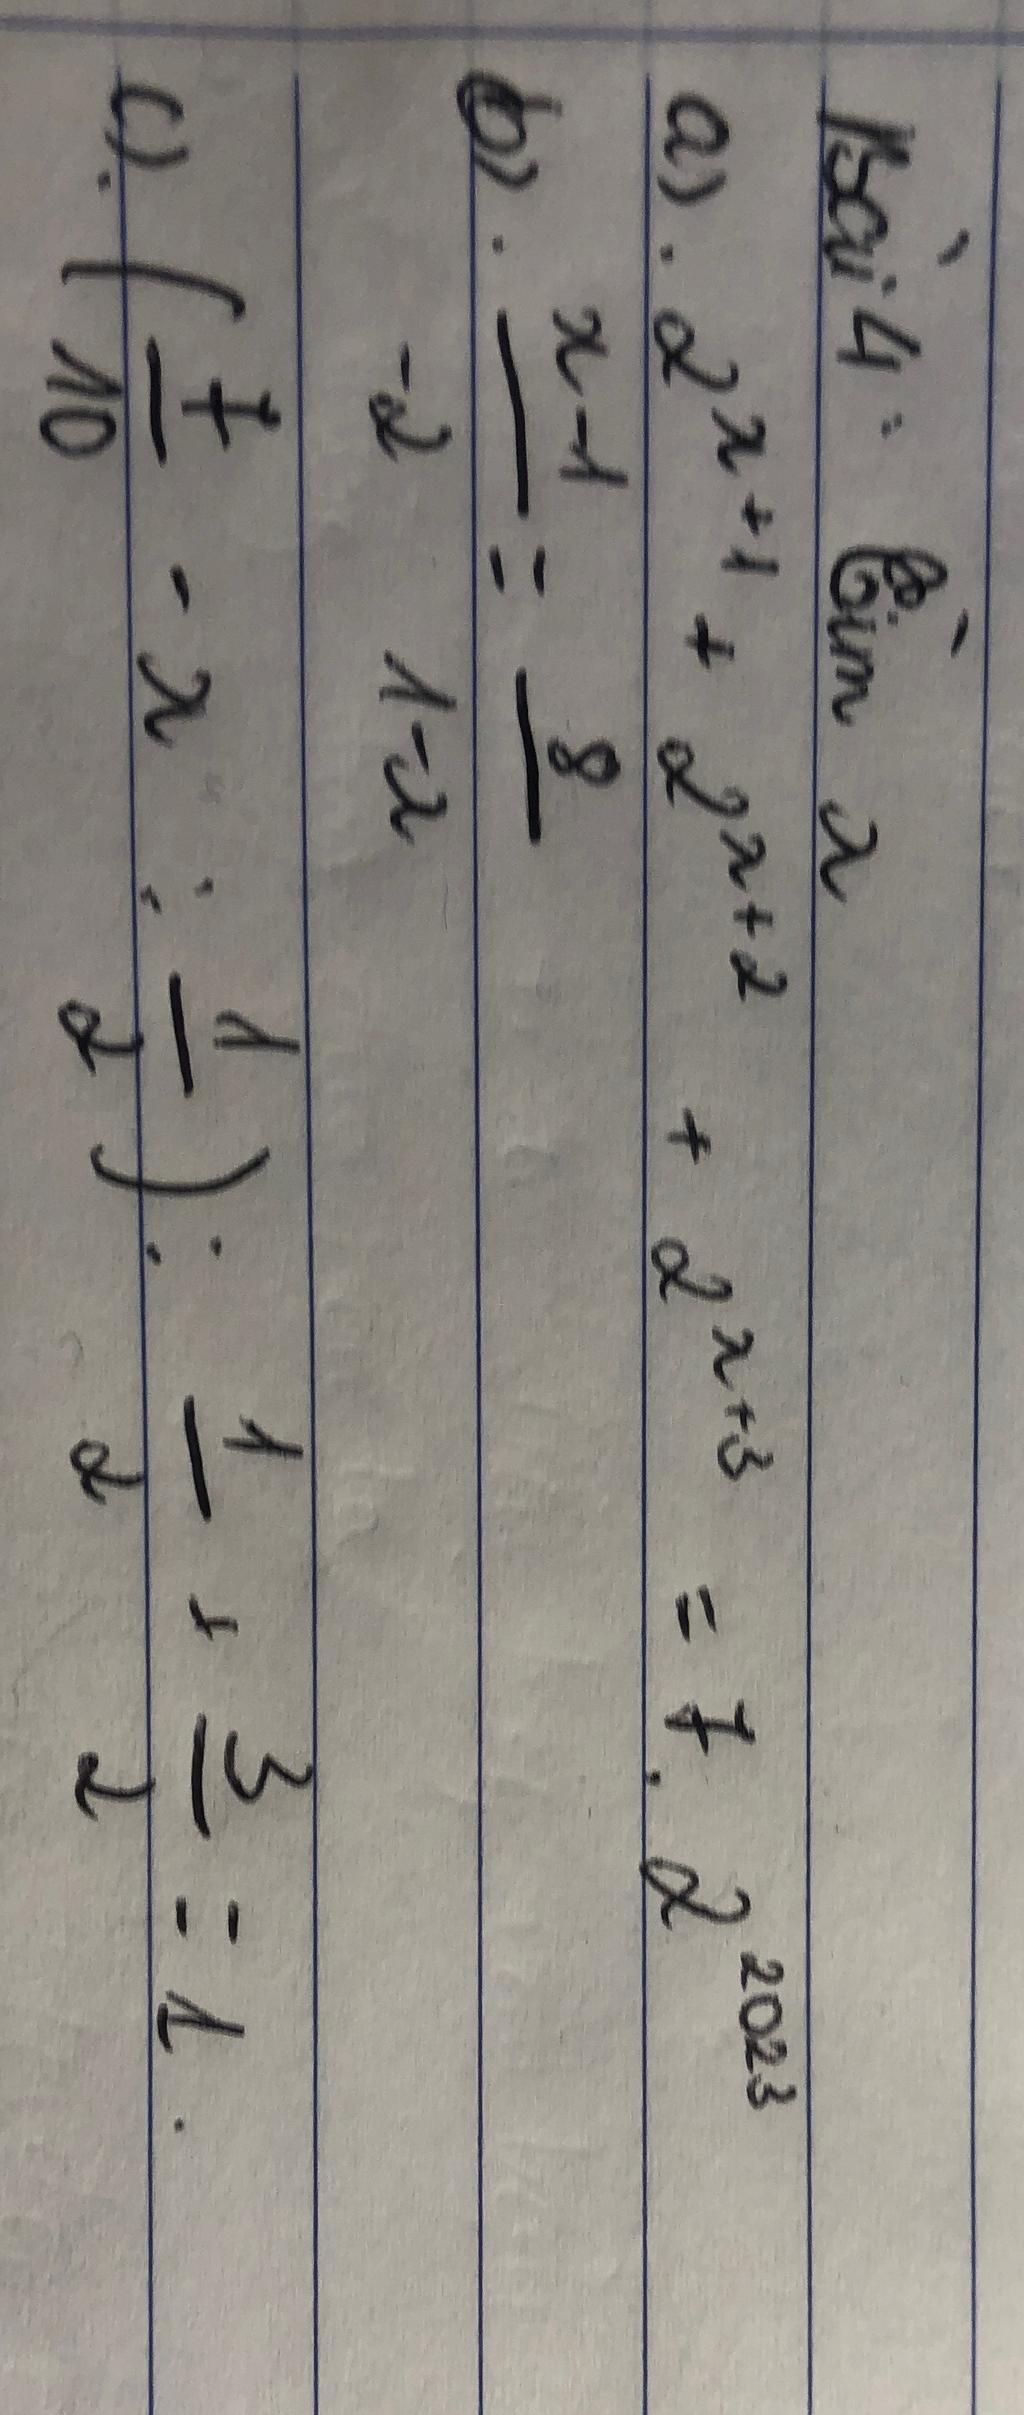 Bài 4: Tìm x
a). 2^{x+1} + 2^{x+2} + 2^{x+3} = 7. 2^{2023}
b). \frac{x-1}{-2} = \frac{8}{1-x}
c). (\frac{7}{10} - x : \frac{1}{2}) : \frac{1}{2} + \frac{3}{2} = 1.